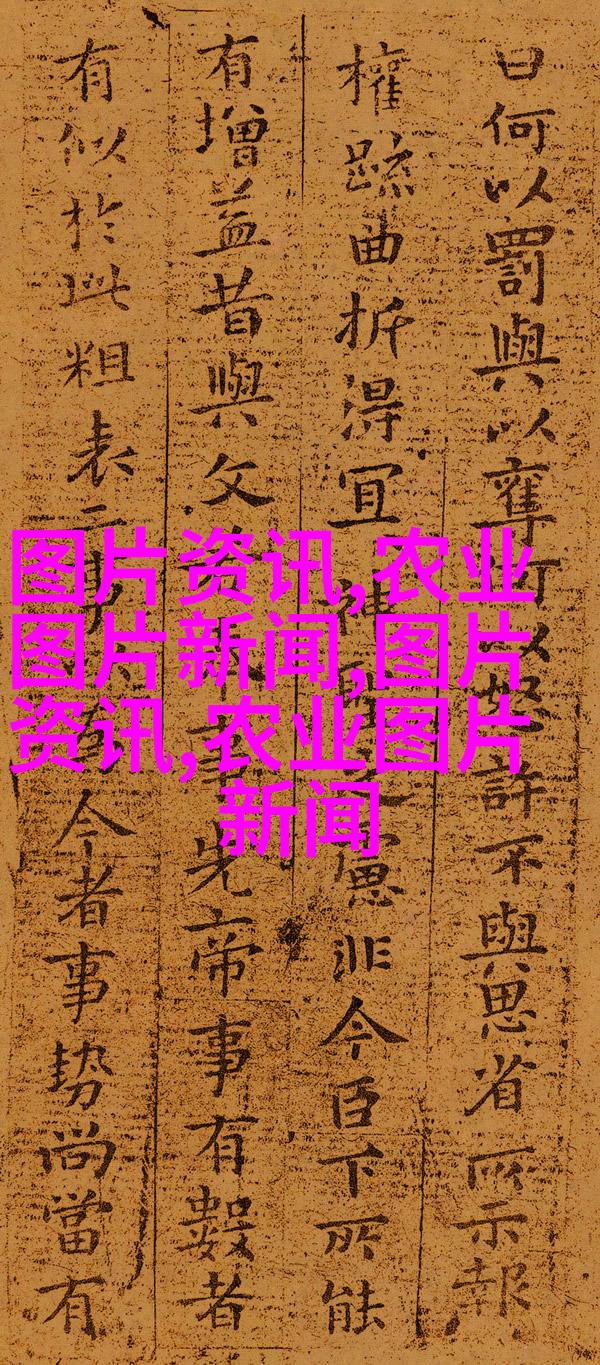 曰何以罰與以奪可以怒許不與思省所示報
權疏曲折得宜神之慮非今臣下所能
有增益昔與文事先帝事有數者
有似於此粗表二事今者事勢尚當有
图片资讯,农业
图片新闻,图片
资讯,农业图片
新闻